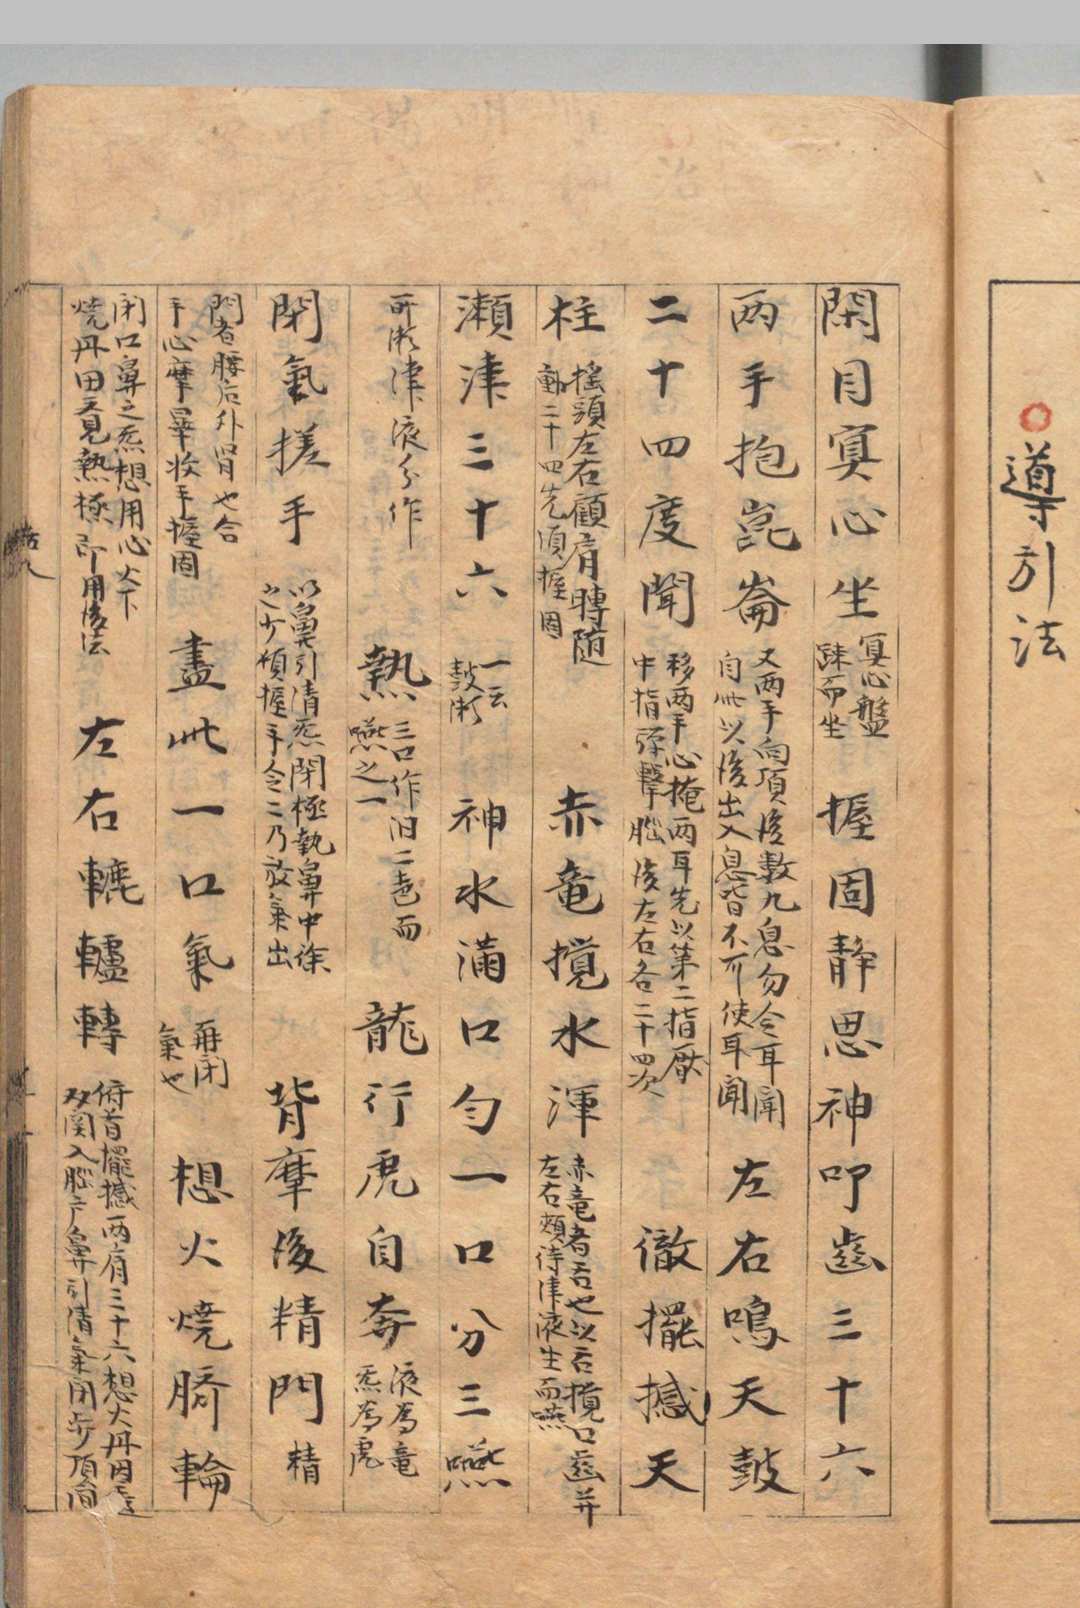 導引法
閑目冥心坐 冥心盤趺而坐 握固静思神叩歯三十六
両手抱崑崙 又両手向項後數九息勿令耳聞自此以後出入息皆不可使耳聞 左右鳴天鼓
二十四度聞 移両手心掩両耳先以第二指厭中指弾擊脳後左右各二十四次 徹擺撼天
柱 揺頭左右顧肩轉随動二十四先須握固 赤竜撹水渾 赤竜者舌也以舌撹口歯并左右頰待津液生而嚥
瀬津三十六 一云鼓漱 神水満口匀一口分三嚥
所漱津液分作三口作汩二声而嚥之一 熱 龍行虎自奔 液為竜炁為虎
閉氣搓手 以鼻引清炁閉極執鼻中徐之少須握手令二乃放氣出 背摩後精門 精
門者腰后外腎也合手心摩畢收手握固 盡此一口氣 再閉氣也 想火焼臍輪
閉口鼻之炁想用心火下焼丹田覚熱極即用後法 左右轆轤轉 俯首擺撼両肩三十六想火丹田透双関入脳戸鼻引清氣閉少頂間